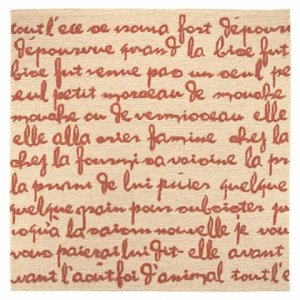 tout l'été se trouva fort dépourv
dépourvue quand la bise fut
bise fut venue pas un seul pe
seul petit morceau de mouche
mouche ou de vermisseau elle
elle alla crier famine chez la
chez la fourmi sa voisine la pr
la priant de lui prêter quelque
quelque grain pour subsister ju
jusqu'à la saison nouvelle je vou
vous paierai lui dit-elle avant
avant l'août foi d'animal tout l'é